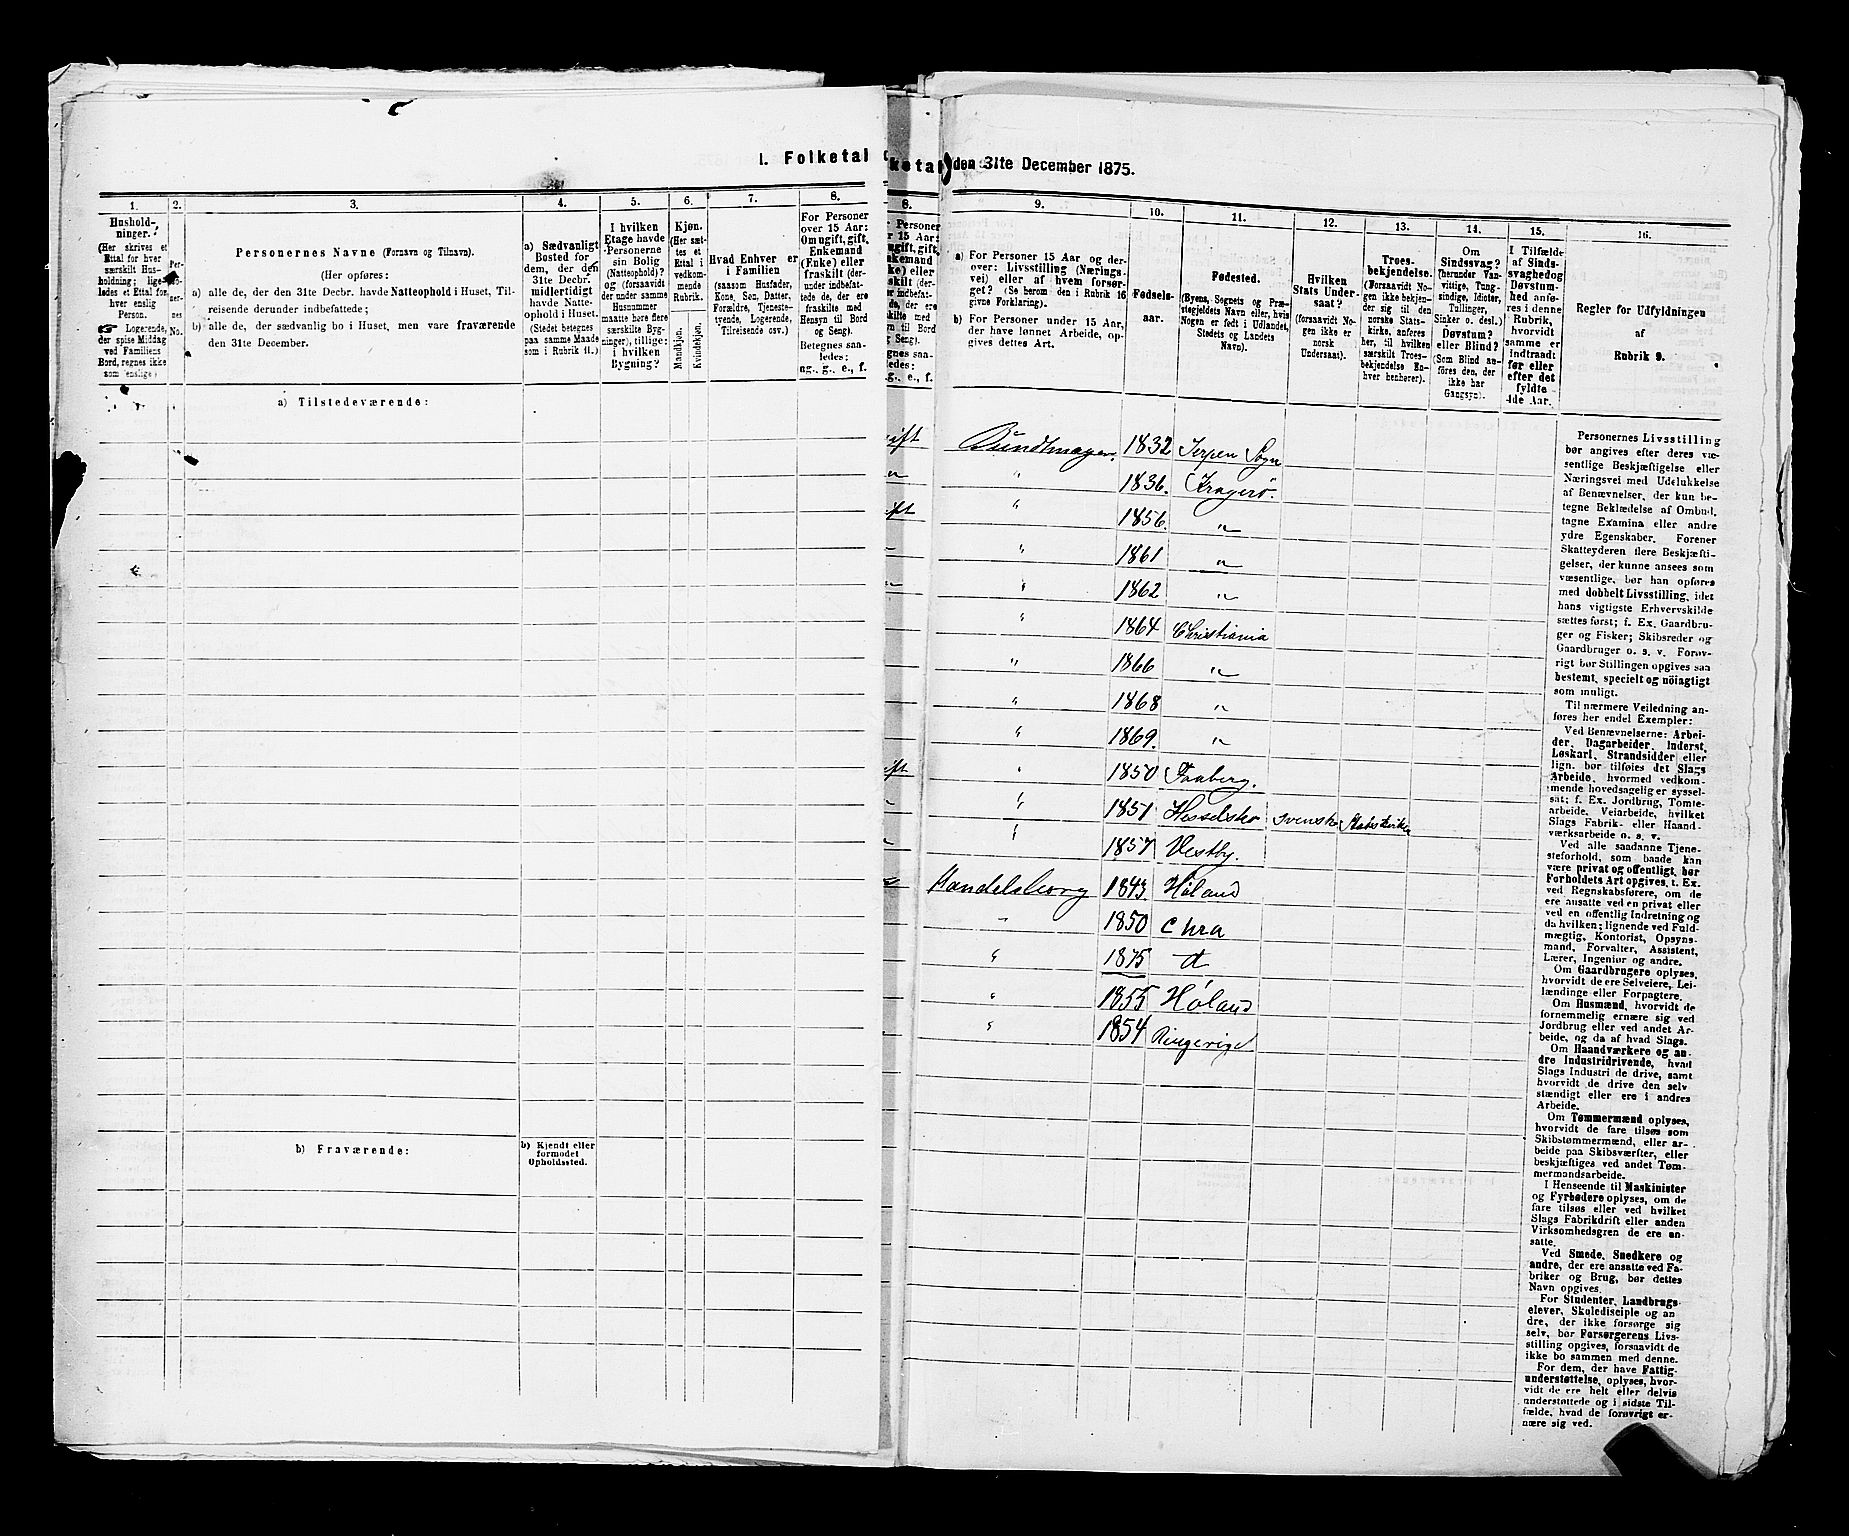 1. Folketal
ketal den 31te December 1875.
1.
2.
3.
4.
5.
6.
7.
8.
Hushold-
ninger.
(Her skrives et
Ettal for hver
særskilt Hus-
holdning; lige-
ledes et Ettal for
hver enslig
Person.
Logerende,
der spise Middag
ved Familiens
Bord, regnes ikke
som enslige.)
No.
Personernes Navne (Fornavn og Tilnavn).
(Her opføres:
a) alle de, der den 31te Decbr. havde Natteophold i Huset, Til-
reisende derunder indbefattede;
b) alle de, der sædvanlig bo i Huset, men vare fraværende
den 31te December.
a) Sædvanligt
Bosted for
dem, der den
31te Decbr.
midlertidigt
havde Natte-
ophold i Huset.
(Stedet betegnes
paa samme Maade
som i Rubrik 11.)
I hvilken
Etage havde
Personerne
sin Bolig
(Natteophold)?
og (forsaavidt
der under samme
Husnummer
maatte høre flere
særskilte Byg-
ninger), tillige:
i hvilken
Bygning?
Kjøn.
(Her sæt-
tes et
Ettal i
vedkom-
mende
Rubrik.
Mandkjøn.
Kvindekjøn.
Hvad Enhver er
i Familien
(saasom Husfader,
Kone, Søn, Datter,
Forældre, Tjeneste-
tyende, Logerende,
Tilreisende osv.)
For Personer
over 15 Aar:
Om ugift, gift,
Enkemand
(Enke) eller
fraskilt (der-
under indbefat-
tede de, der ere
fraskilte med
Hensyn til Bord
og Seng).
Betegnes saa-
ledes:
ug., g., e., f.
a) Tilstedeværende:
b) Fraværende:
b) Kjendt eller
formodet
Opholdssted.
8.
9.
10.
11.
12.
13.
14.
15.
16.
a) For Personer 15 Aar og der-
over: Livsstilling (Nærings-
vei) eller af hvem forsør-
get? (Se herom den i Rubrik 16
givne Forklaring).
b) For Personer under 15 Aar,
der have lønnet Arbeide, op-
gives dettes Art.
Fødsels-
aar.
Fødested.
(Byens, Sognets og Præ-
stegjeldets Navn eller, hvis
Nogen er født i Udlandet,
Stedets og Landets
Navn).
Hvilken
Stats Under-
saat?
(forsaavidt No-
gen ikke er
norsk
Undersaat).
Troes-
bekjendelse.
(Forsaavidt No-
gen ikke bekjen-
der sig til den
norske Stats-
kirke, anføres
her, til hvilken
særskilt Troes-
bekjendelse En-
hver henhører).
Om
Sindssvag?
(herunder Van-
vittige, Tung-
sindige, Idioter,
Tullinger,
Sinker o. desl.)
Døvstum?
eller Blind?
(Som Blind an-
føres den, der
ikke har
Gangsyn).
I Tilfælde
af Sinds-
svaghed og
Døvstum-
hed anfø-
res i denne
Rubrik,
hvorvidt
samme er
indtraadt
før eller
efter det
fyldte
4de Aar.
Regler for Udfyldningen
af
Rubrik 9.
ift Bundtmager. 1832 Sogn
" 1836. Kragerø.
ift " 1856. "
" 1861 "
" 1862 "
" 1864 Christiania
" 1866 "
" 1868 "
" 1869. "
ift " 1850 Faaberg.
" 1851 svensk
" 1857 Vestby.
Handelsborg 1843. Høland
" 1850 Chra
" 1875 d
" 1855 Høland
" 1854 Ringerige
Personernes Livsstilling
bør angives efter deres væ-
sentlige Beskjæftigelse eller
Næringsvei med Udelukkelse
af Benævnelser, der kun be-
tegne Beklædelse af Ombud,
tagne Examina eller andre
ydre Egenskaber. Forener
Skatteyderen flere Beskjæfti-
gelser, der kunne ansees som
væsentlige, bør han opføres
med dobbelt Livsstilling, idet
hans vigtigste Erhvervskilde
sættes først; f. Ex. Gaardbru-
ger og Fisker; Skibsreder og
Gaardbruger o. s. v. Forøv-
rigt bør Stillingen opgives saa
bestemt, specielt og nöiagtigt
som muligt.
Til nærmere Veiledning an-
føres her endel Exempler:
Ved Benævnelserne: Arbei-
der, Dagarbeider, Inderst,
Løskarl, Strandsidder eller
lign. bør tilføies det Slags
Arbeide, hvormed vedkom-
mende hovedsagelig er syssel-
sat; f. Ex. Jordbrug, Tomte-
arbeide, Veiarbeide, hvilket
Slags Fabrik- eller Haand-
værksarbeide o. s. v.
Ved alle saadanne Tjene-
steforhold, som baade kan
være privat og offentligt, bør
Forholdets Art opgives, t. Ex.
ved Regnskabsførere, om de
ere ansatte ved en privat eller
ved en offentlig Indretning og
da hvilken; lignende ved Fuld-
mægtig, Kontorist, Opsyns-
mand, Forvalter, Assistent,
Lærer, Ingeniør og andre.
Om Gaardbrugere oplyses,
hvorvidt de ere Selveiere, Lei-
lændinge eller Forpagtere.
Om Husmænd, hvorvidt de
fornemmelig ernære sig ved
Jordbrug eller ved andet Ar-
beide, og da af hvad Slags.
Om Haandværkere og an-
dre Industridrivende, hvad
Slags Industri de drive, samt
hvorvidt de drive den selv-
stændigt eller ere i andres
Arbeide.
Om Tømmermænd oplyses,
hvorvidt de fare tilsøs som
Skibstømmermænd, eller ar-
beide paa Skibsværfter, eller
beskjæftiges ved andet Tøm-
mermandsarbeide.
I Henseende til Maskinister
og Fyrbødere oplyses, om de
fare tilsøs eller ved hvilket
Slags Fabrikdrift eller anden
Virksomhedsgren de ere an-
satte.
Ved Smede, Snedkere og
andre, der ere ansatte ved Fa-
briker og Brug, bør dettes
Navn opgives.
For Studenter, Landbrugs-
elever, Skoledisciple og an-
dre, der ikke forsørge sig
selv, bør Forsørgerens Livs-
stilling opgives, forsaavidt de
ikke bo sammen med denne.
For dem, der have Fattig-
understøttelse, oplyses, hvor-
vidt de ere helt eller delvis
understøttede og i sidste Til-
fælde, hvad de forøvrigt er-
nære sig ved.